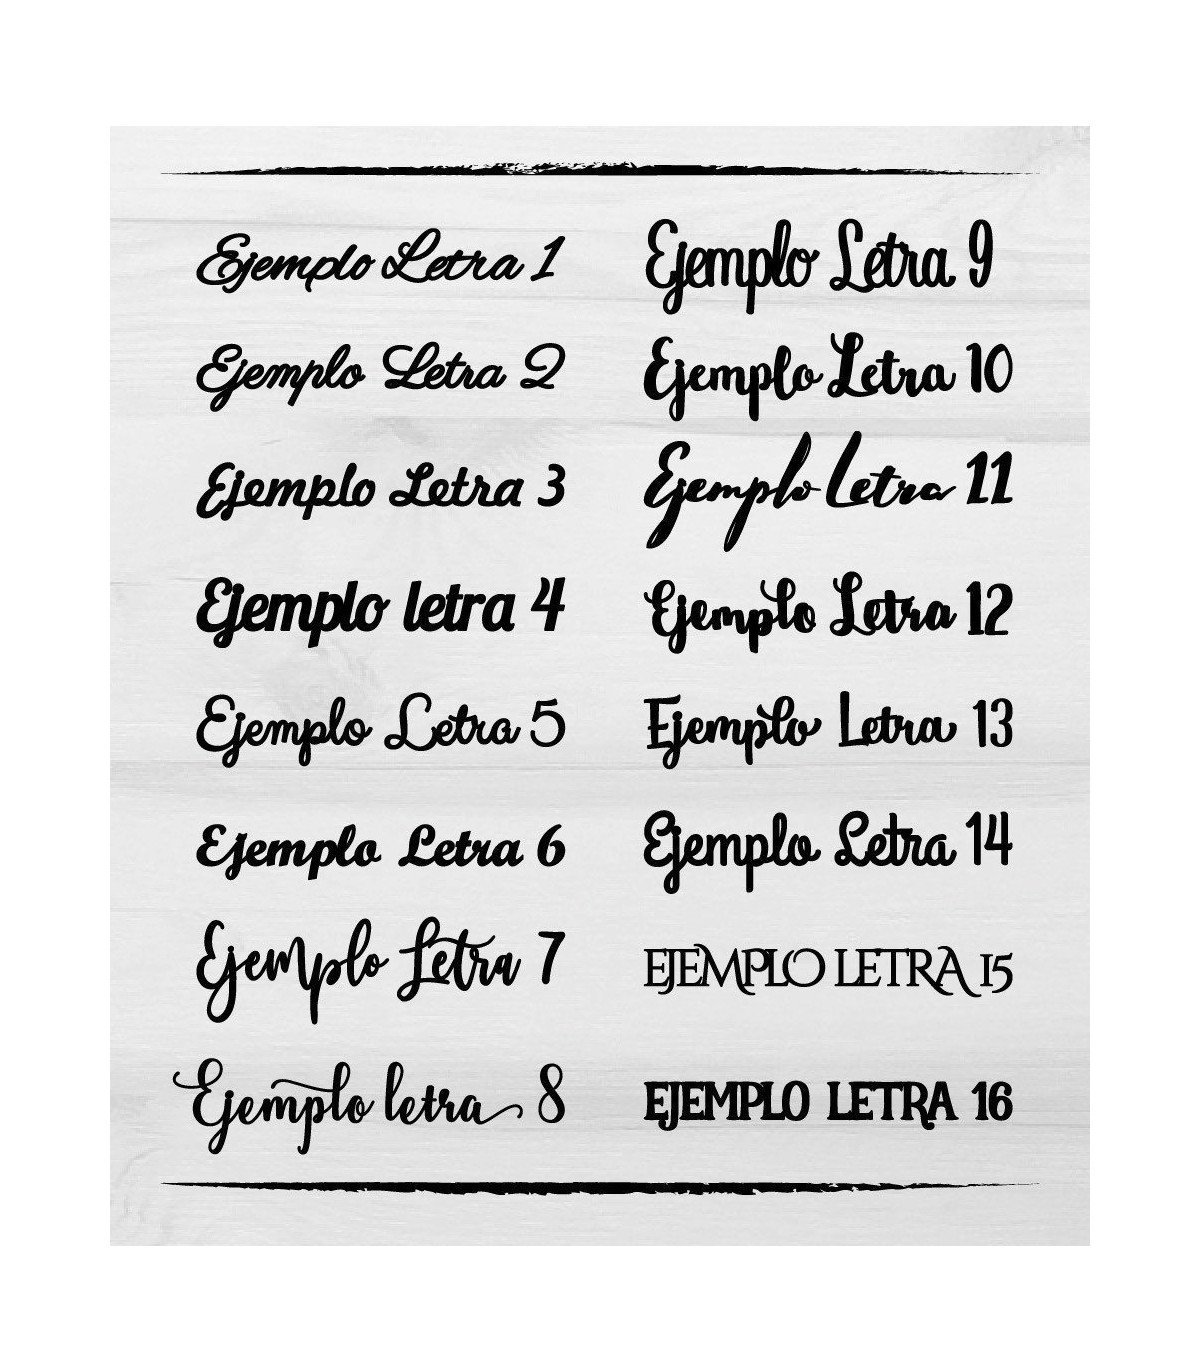 Ejemplo Letra 1
Ejemplo Letra 2
Ejemplo Letra 3
Ejemplo letra 4
Ejemplo Letra 5
Ejemplo Letra 6
Ejemplo Letra 7
Ejemplo letra 8
Ejemplo Letra 9
Ejemplo Letra 10
Ejemplo Letra 11
Ejemplo Letra 12
Ejemplo Letra 13
Ejemplo Letra 14
EJEMPLO LETRA 15
EJEMPLO LETRA 16